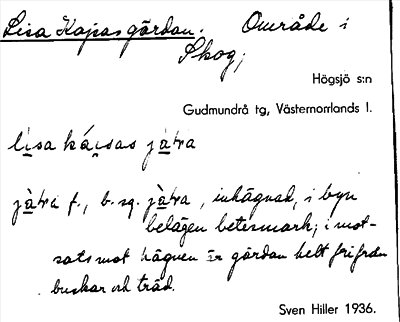 Lisa Kajsas gärdan. Område i
Skog,
Högsjö s:n
Gudmundrå tg, Västernorrlands l.
lisa kájsas jàtra
jàtra f., b. sg. jàtra, inhägnad, i byn
belägen betesmark; i mot-
sats mot hägnen är gärdan helt fri från
buskar och träd.
Sven Hiller 1936.